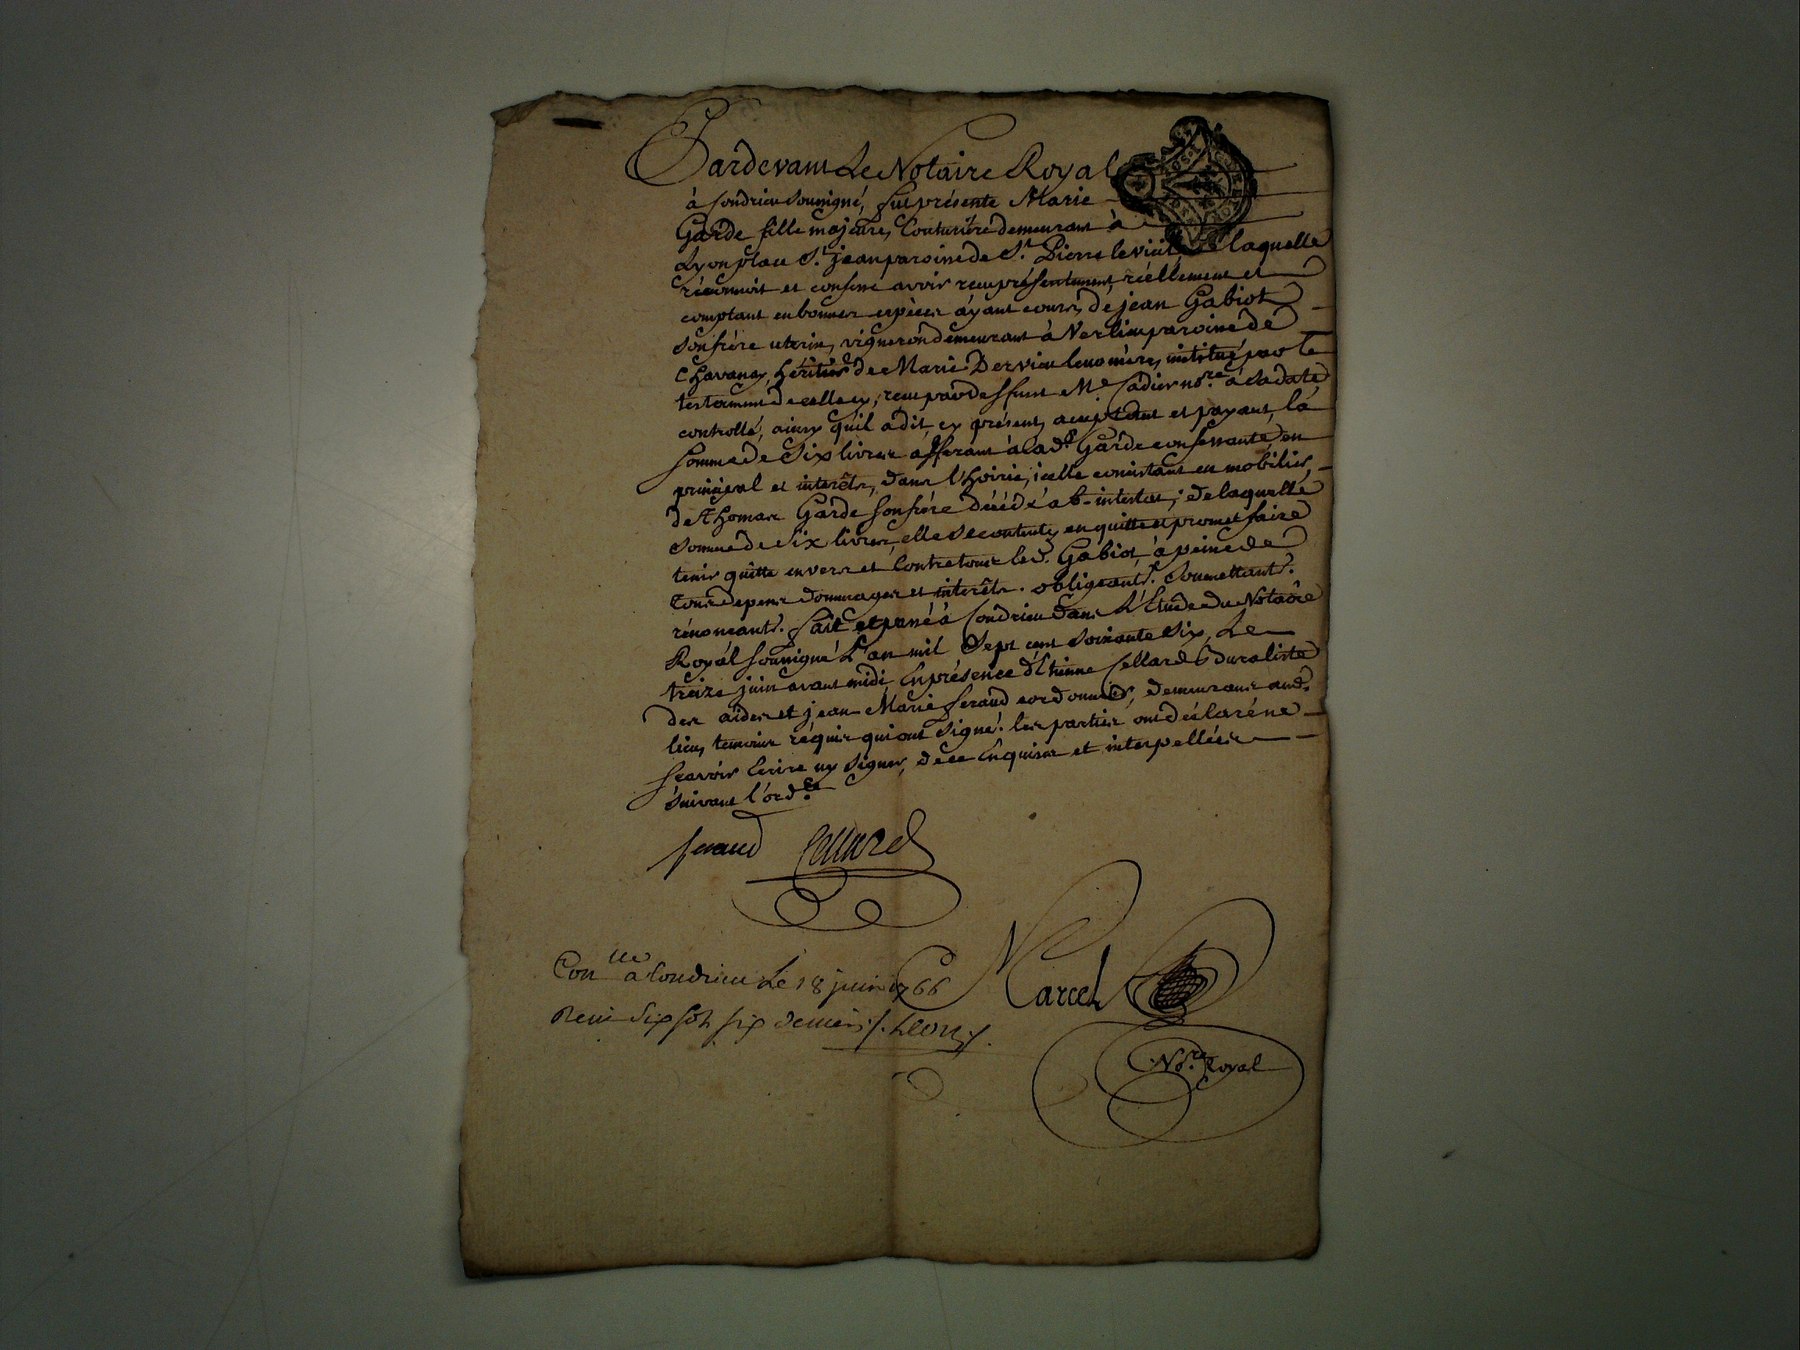 Pardevant Le Notaire Royal
à Condrieu soussigné, fut présente Marie
Garde fille majeure, Couturière demeurant à
Lyon place St. jean paroisse de St. Pierre le vieil laquelle
réconnoit et confesse avoir reçu présentement, réellement et
comptant en bonnes espèces áyant cours, de jean Gabiot
son frère uterin, vigneron demeurant à Verlieu paroisse de
Chavanay, héritier de Marie Dervieu leur mère, institué par le
testament de celle cy, reçu par deffunt Me. Cadier nore. à sa date
controllé, ainsy qu'il a dit, cy présent, acceptant et payant, la
somme de Six livres afferant à lad.e Garde confessante, en
principal et interêts, dans l'hoirie, icelle consistant en mobilier,
de Thomas Garde son frère décédé ab-intestat; de laquelle
somme de Six livres, elle se contente, en quitte et promet faire
tenir quitte envers et Contre tous led. Gabiot, à peine de
tous depens dommages et interêts. obligeants. Soumettants.
rénonceants. fait et passé à Condrieu dans L'Etude du Notaire
Royál soussigné L'an mil Sept cent soixante six, Le
treize juin avant midi, En présence d'Etienne Cellard Buraliste
des aides et jean Marie feraud cordonnier, demeurans aud.
lieu, temoins réquis qui ont Signé. les parties ont déclaré ne
sçavoir Ecrire ny Signer, de ce Enquises et interpellées
suivant l'ord.ce
feraud Cellard
Con.lle à Condrieu Le 18 juin 1766
Reçu Six sols six deniers
Marcel
No.re Royal